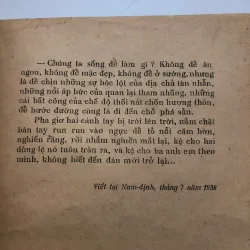 — Chúng ta sống để làm gì ? Không để ăn
ngon, không để mặc đẹp, không để ở sướng, nhưng
là để chịu những sự bóc lột của địa chủ tàn nhẫn,
những nỗi áp bức của quan lại tham nhũng, những
cái bất công của chế độ thối nát chốn hương thôn,
để bước đường cùng là đi đến chỗ phá sản.
Pha giơ hai cánh tay bị trói lên trời, nắm chặt
bàn tay run run vào ngực để tỏ nỗi căm hờn,
nghiến răng, rồi nhắm nghiền mắt lại, kệ cho hai
dòng lệ nó tuôn trào ra, và kệ cho ba anh em theo
mình, không biết đến đâu mới trở lại...
Viết tại Nam-định, tháng 7 năm 1938